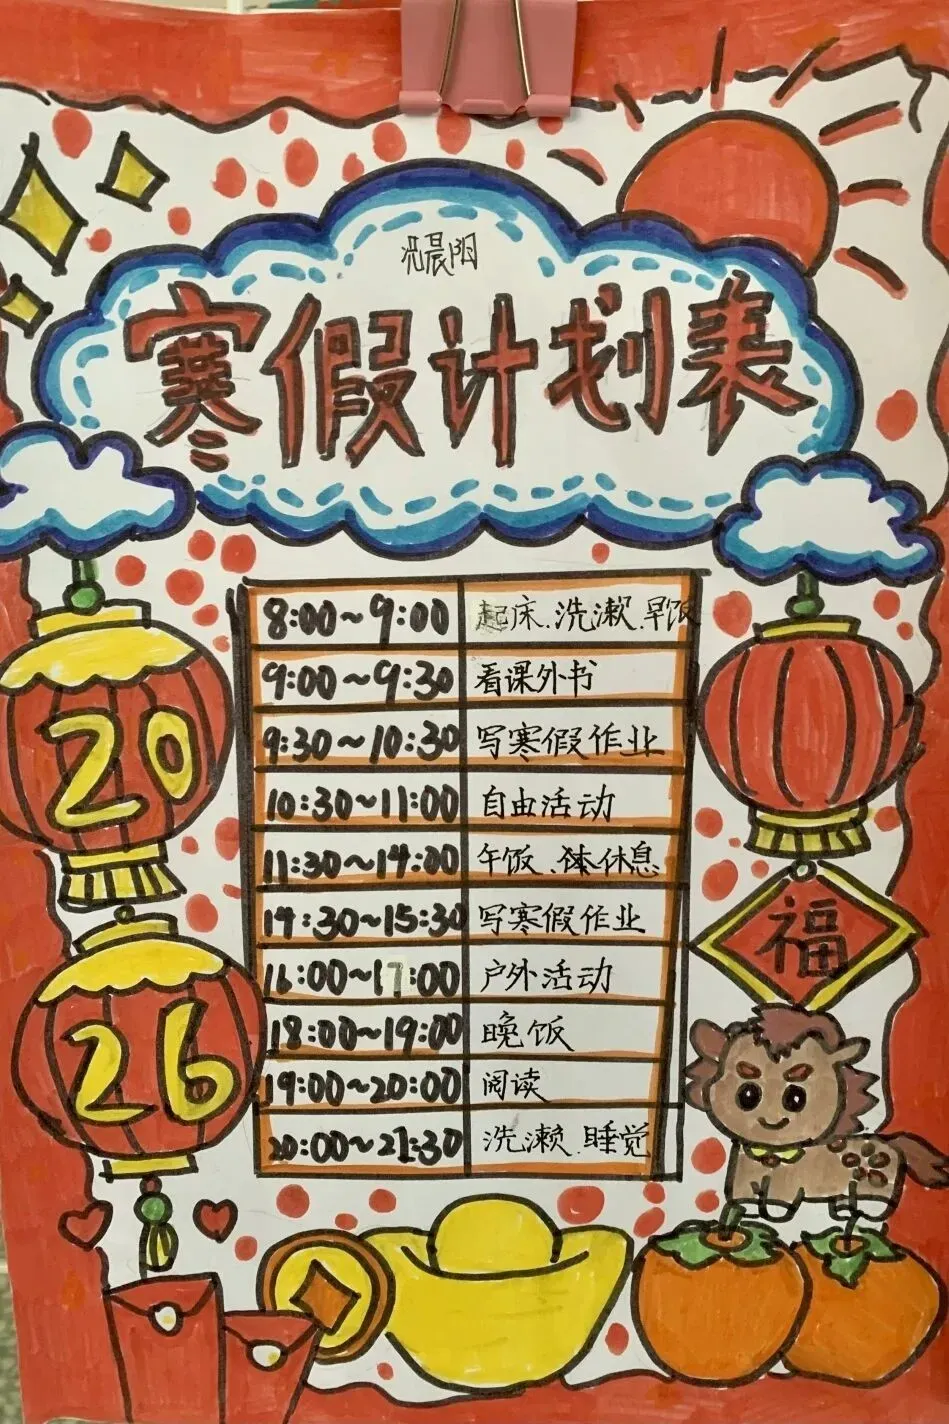 冼晨阳
寒假计划表
8:00~9:00 起床.洗漱.早饭
9:00~9:30 看课外书
9:30~10:30 写寒假作业
10:30~11:00 自由活动
11:30~14:00 午饭.休息
14:30~15:30 写寒假作业
16:00~17:00 户外活动
18:00~19:00 晚饭
19:00~20:00 阅读
20:00~21:30 洗漱.睡觉
20
26
福